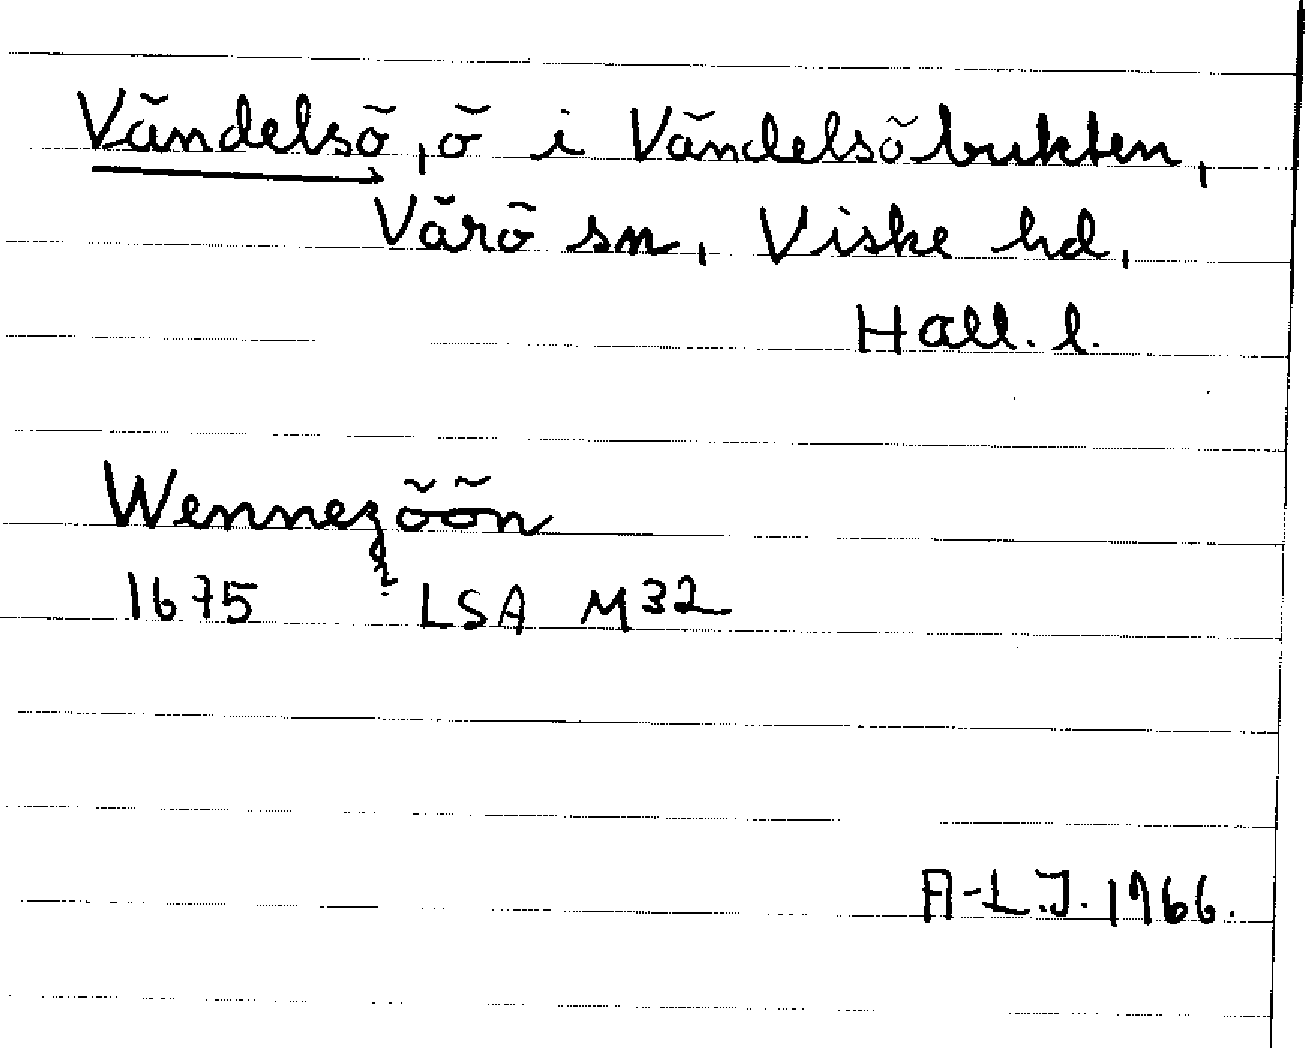 Vändelsö, ö i Vändelsöbukten,
Värö sn, Viske hd,
Hall. l.
Wennezöön
1675 LSA M32
A-L.J. 1966.